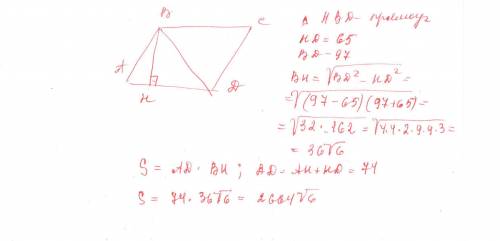 B
C
A
H
D
Δ HBD - прямоуг
HD = 65
BD - 97
BH = √BD² - HD² =
= √(97 - 65)(97 + 65) =
= √32 · 162 = √4.4.2.9.9.3 =
= 36√6
S = AD · BH ; AD = AH + HD = 74
S = 74 · 36√6 = 2664√6